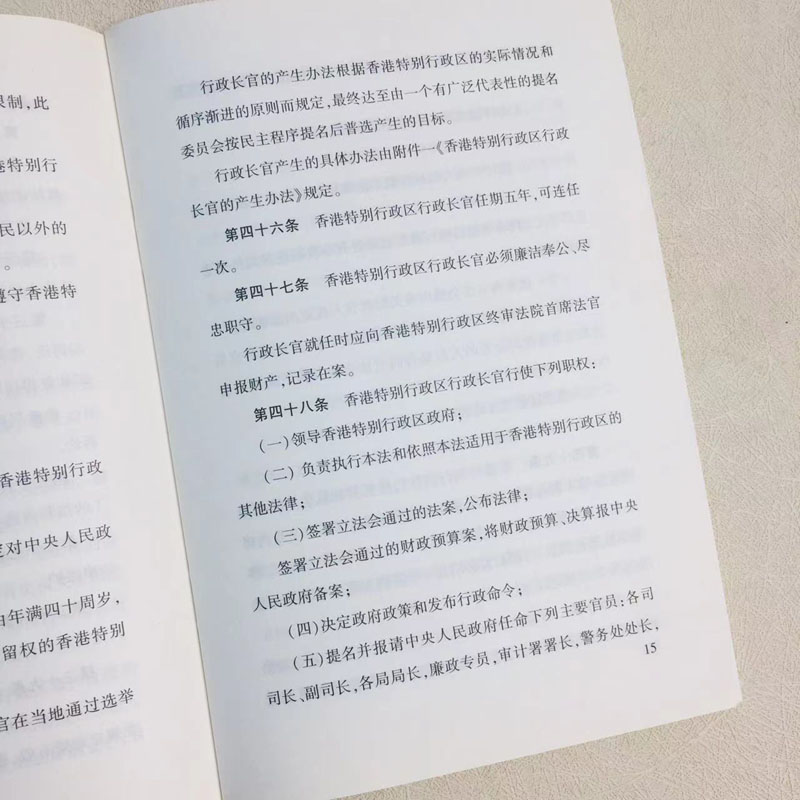 限制,此
港特别行
民以外的
。
遵守香港特
香港特别行政
定对中央人民政
由年满四十周岁,
留权的香港特别
官在当地通过选举
行政长官的产生办法根据香港特别行政区的实际情况和
循序渐进的原则而规定,最终达至由一个有广泛代表性的提名
委员会按民主程序提名后普选产生的目标。
行政长官产生的具体办法由附件一《香港特别行政区行政
长官的产生办法》规定。
第四十六条 香港特别行政区行政长官任期五年,可连任
一次。
第四十七条 香港特别行政区行政长官必须廉洁奉公、尽
忠职守。
行政长官就任时应向香港特别行政区终审法院首席法官
申报财产,记录在案。
第四十八条 香港特别行政区行政长官行使下列职权:
(一)领导香港特别行政区政府;
(二)负责执行本法和依照本法适用于香港特别行政区的
其他法律;
(三)签署立法会通过的法案,公布法律;
签署立法会通过的财政预算案,将财政预算、决算报中央
人民政府备案;
(四)决定政府政策和发布行政命令;
(五)提名并报请中央人民政府任命下列主要官员:各司
司长、副司长,各局局长,廉政专员,审计署署长,警务处处长,
15